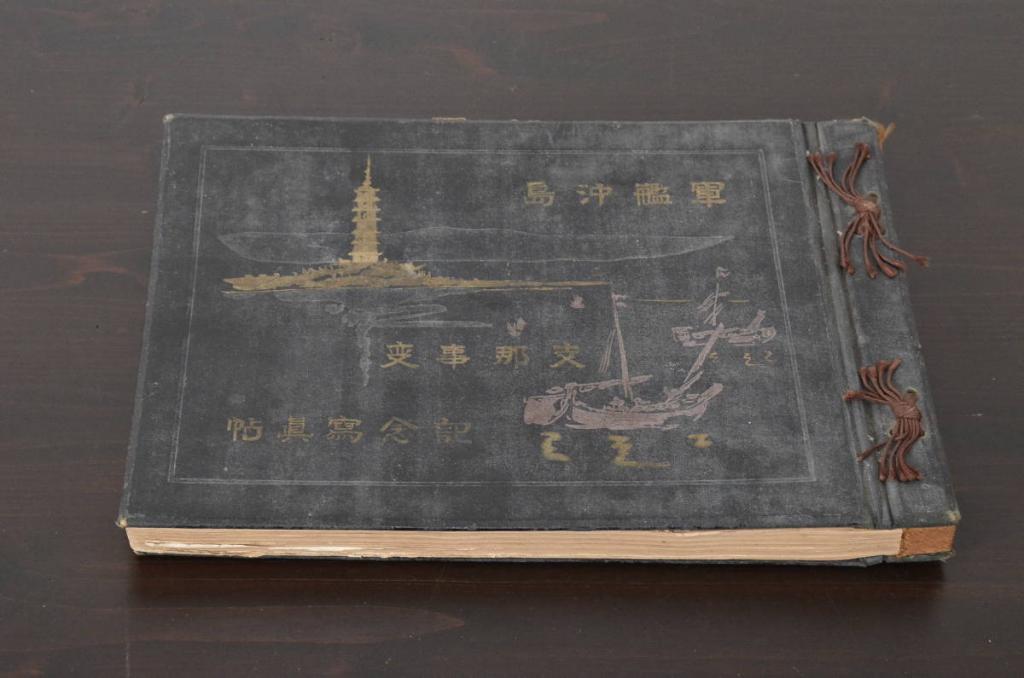 軍艦沖島
支那事変
記念寫眞帖